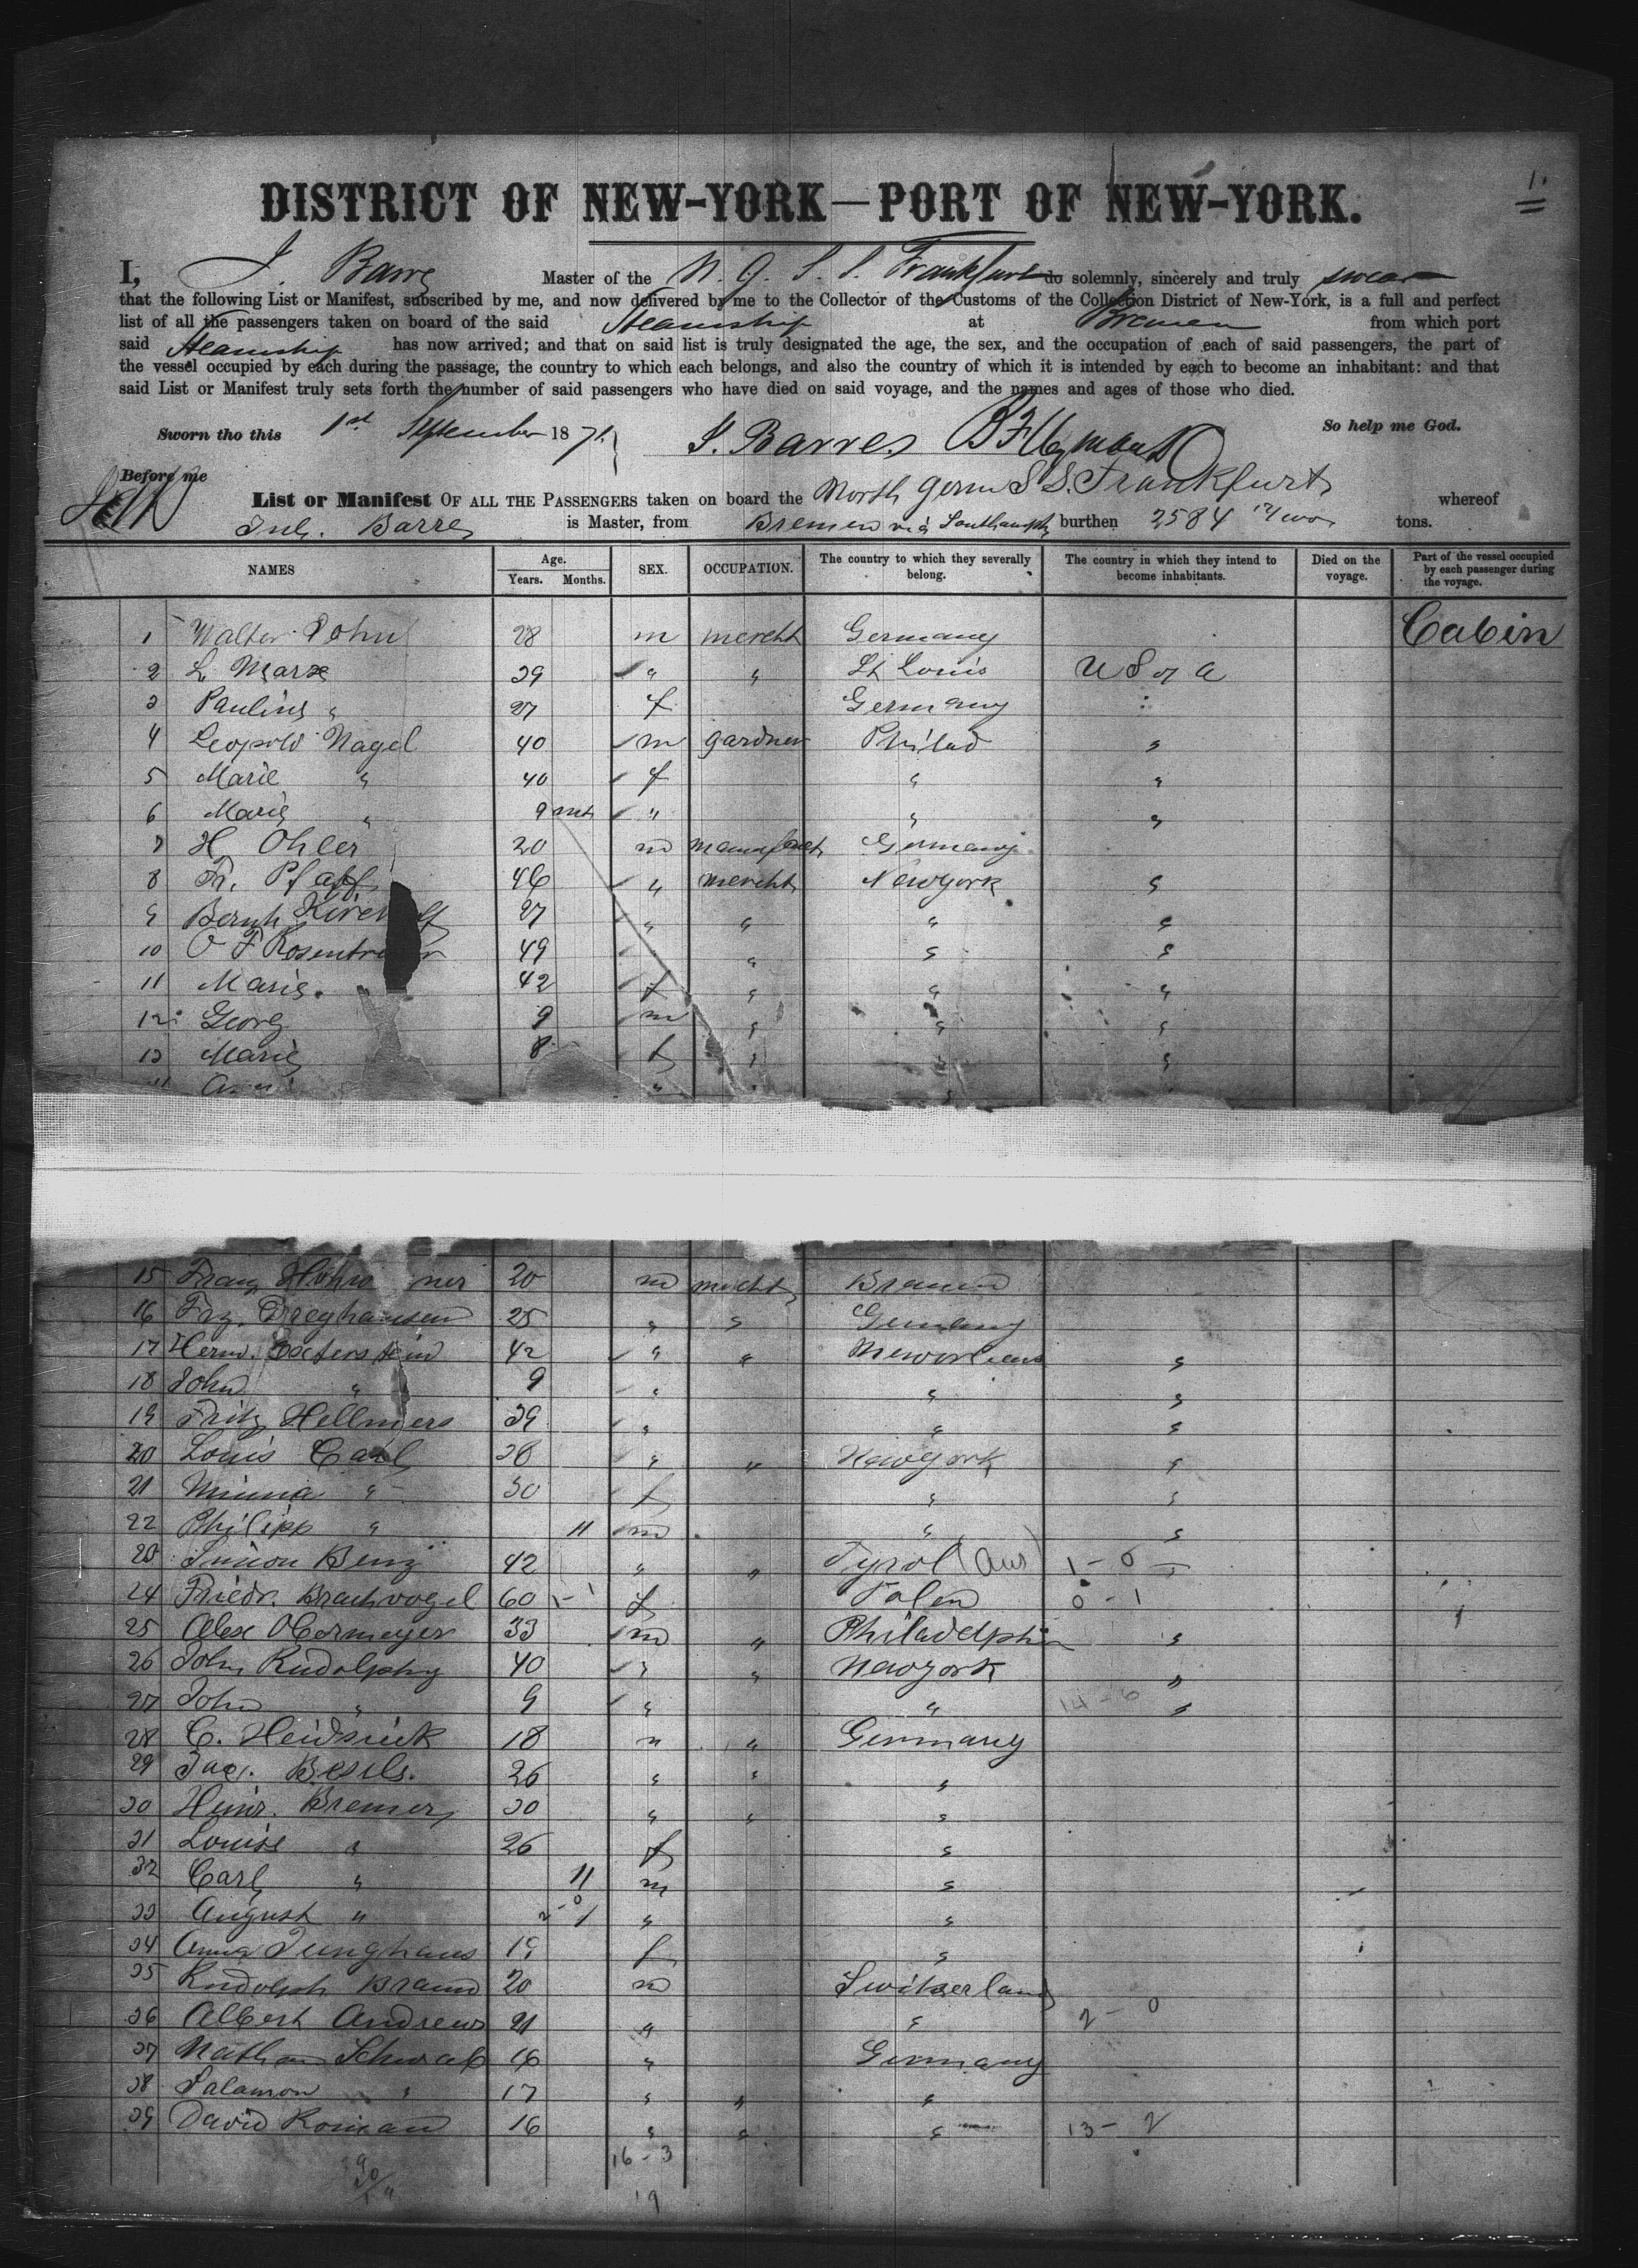 1.
DISTRICT OF NEW-YORK—PORT OF NEW-YORK.
I, J. Barre Master of the N. G. S. S. Frankfurt do solemnly, sincerely and truly swear
that the following List or Manifest, subscribed by me, and now delivered by me to the Collector of the Customs of the Collection District of New-York, is a full and perfect
list of all the passengers taken on board of the said Steamship at Bremen from which port
said Steamship has now arrived; and that on said list is truly designated the age, the sex, and the occupation of each of said passengers, the part of
the vessel occupied by each during the passage, the country to which each belongs, and also the country of which it is intended by each to become an inhabitant: and that
said List or Manifest truly sets forth the number of said passengers who have died on said voyage, and the names and ages of those who died.
Sworn tho this 1st September 1871. J. Barre. So help me God.
Before me
List or Manifest OF ALL THE PASSENGERS taken on board the North Germ S S. Frankfurt whereof
Jul. Barre is Master, from Bremen via Southampt burthen 2584 tons.
NAMES Age. Years. Months. SEX. OCCUPATION. The country to which they severally belong. The country in which they intend to become inhabitants. Died on the voyage. Part of the vessel occupied by each passenger during the voyage.
1 Walter 28 m mercht Germany Cabin
2 L. Marx 39 " " St Louis U S of A
3 Pauline " 27 f Germany :
4 Leopold Nagel 40 m gardner Philad "
5 Marie " 40 f " "
6 Marie " 9 mt " " "
7 H Ohler 20 m manufact Germany
8 Fr. Pfaff 46 " mercht Newyork "
9 Bernh 27 " " " "
10 O F 49 " " "
11 Marie. 42 f " " "
12 Georg 9 m " " "
13 Marie 8 f " "
" "
15 Franz 20 m mercht Bremen
16 Frz. Dreyhausen 25 " " Germany
17 Herm. 42 " " Neworleans "
18 John " 9 " " "
19 Fritz Hellmers 39 " " "
20 Louis Carl 38 " " Newyork "
21 Minna " 30 f " "
22 Philipp " 11 m " "
23 Simon Benz 42 " " Tyrol (Aus) 1 - 0
24 Friedr. Brachvogel 60 f Polen 0 - 1
25 Alex Obermeyer 33 m " Philadelphia "
26 John Rudolphy 40 " " Newyork "
27 John " 9 " " 14 - 6 "
28 C. Heidsieck 18 " " Germany
29 Jac. Besels. 26 " " "
30 Heinr. Bremer 30 " " "
31 Louise " 26 f "
32 Carl " 11 m "
33 August " 2 - 0 1 " "
34 Anna Junghans 19 f "
35 Rudolph Braun 20 m Switzerland
36 Albert Andrews 21 " " 2 - 0
37 Nathan Schwab 16 " Germany
38 Salamon " 17 " " "
39 David Roman 16 " " " 13 - 2
16 - 3
19